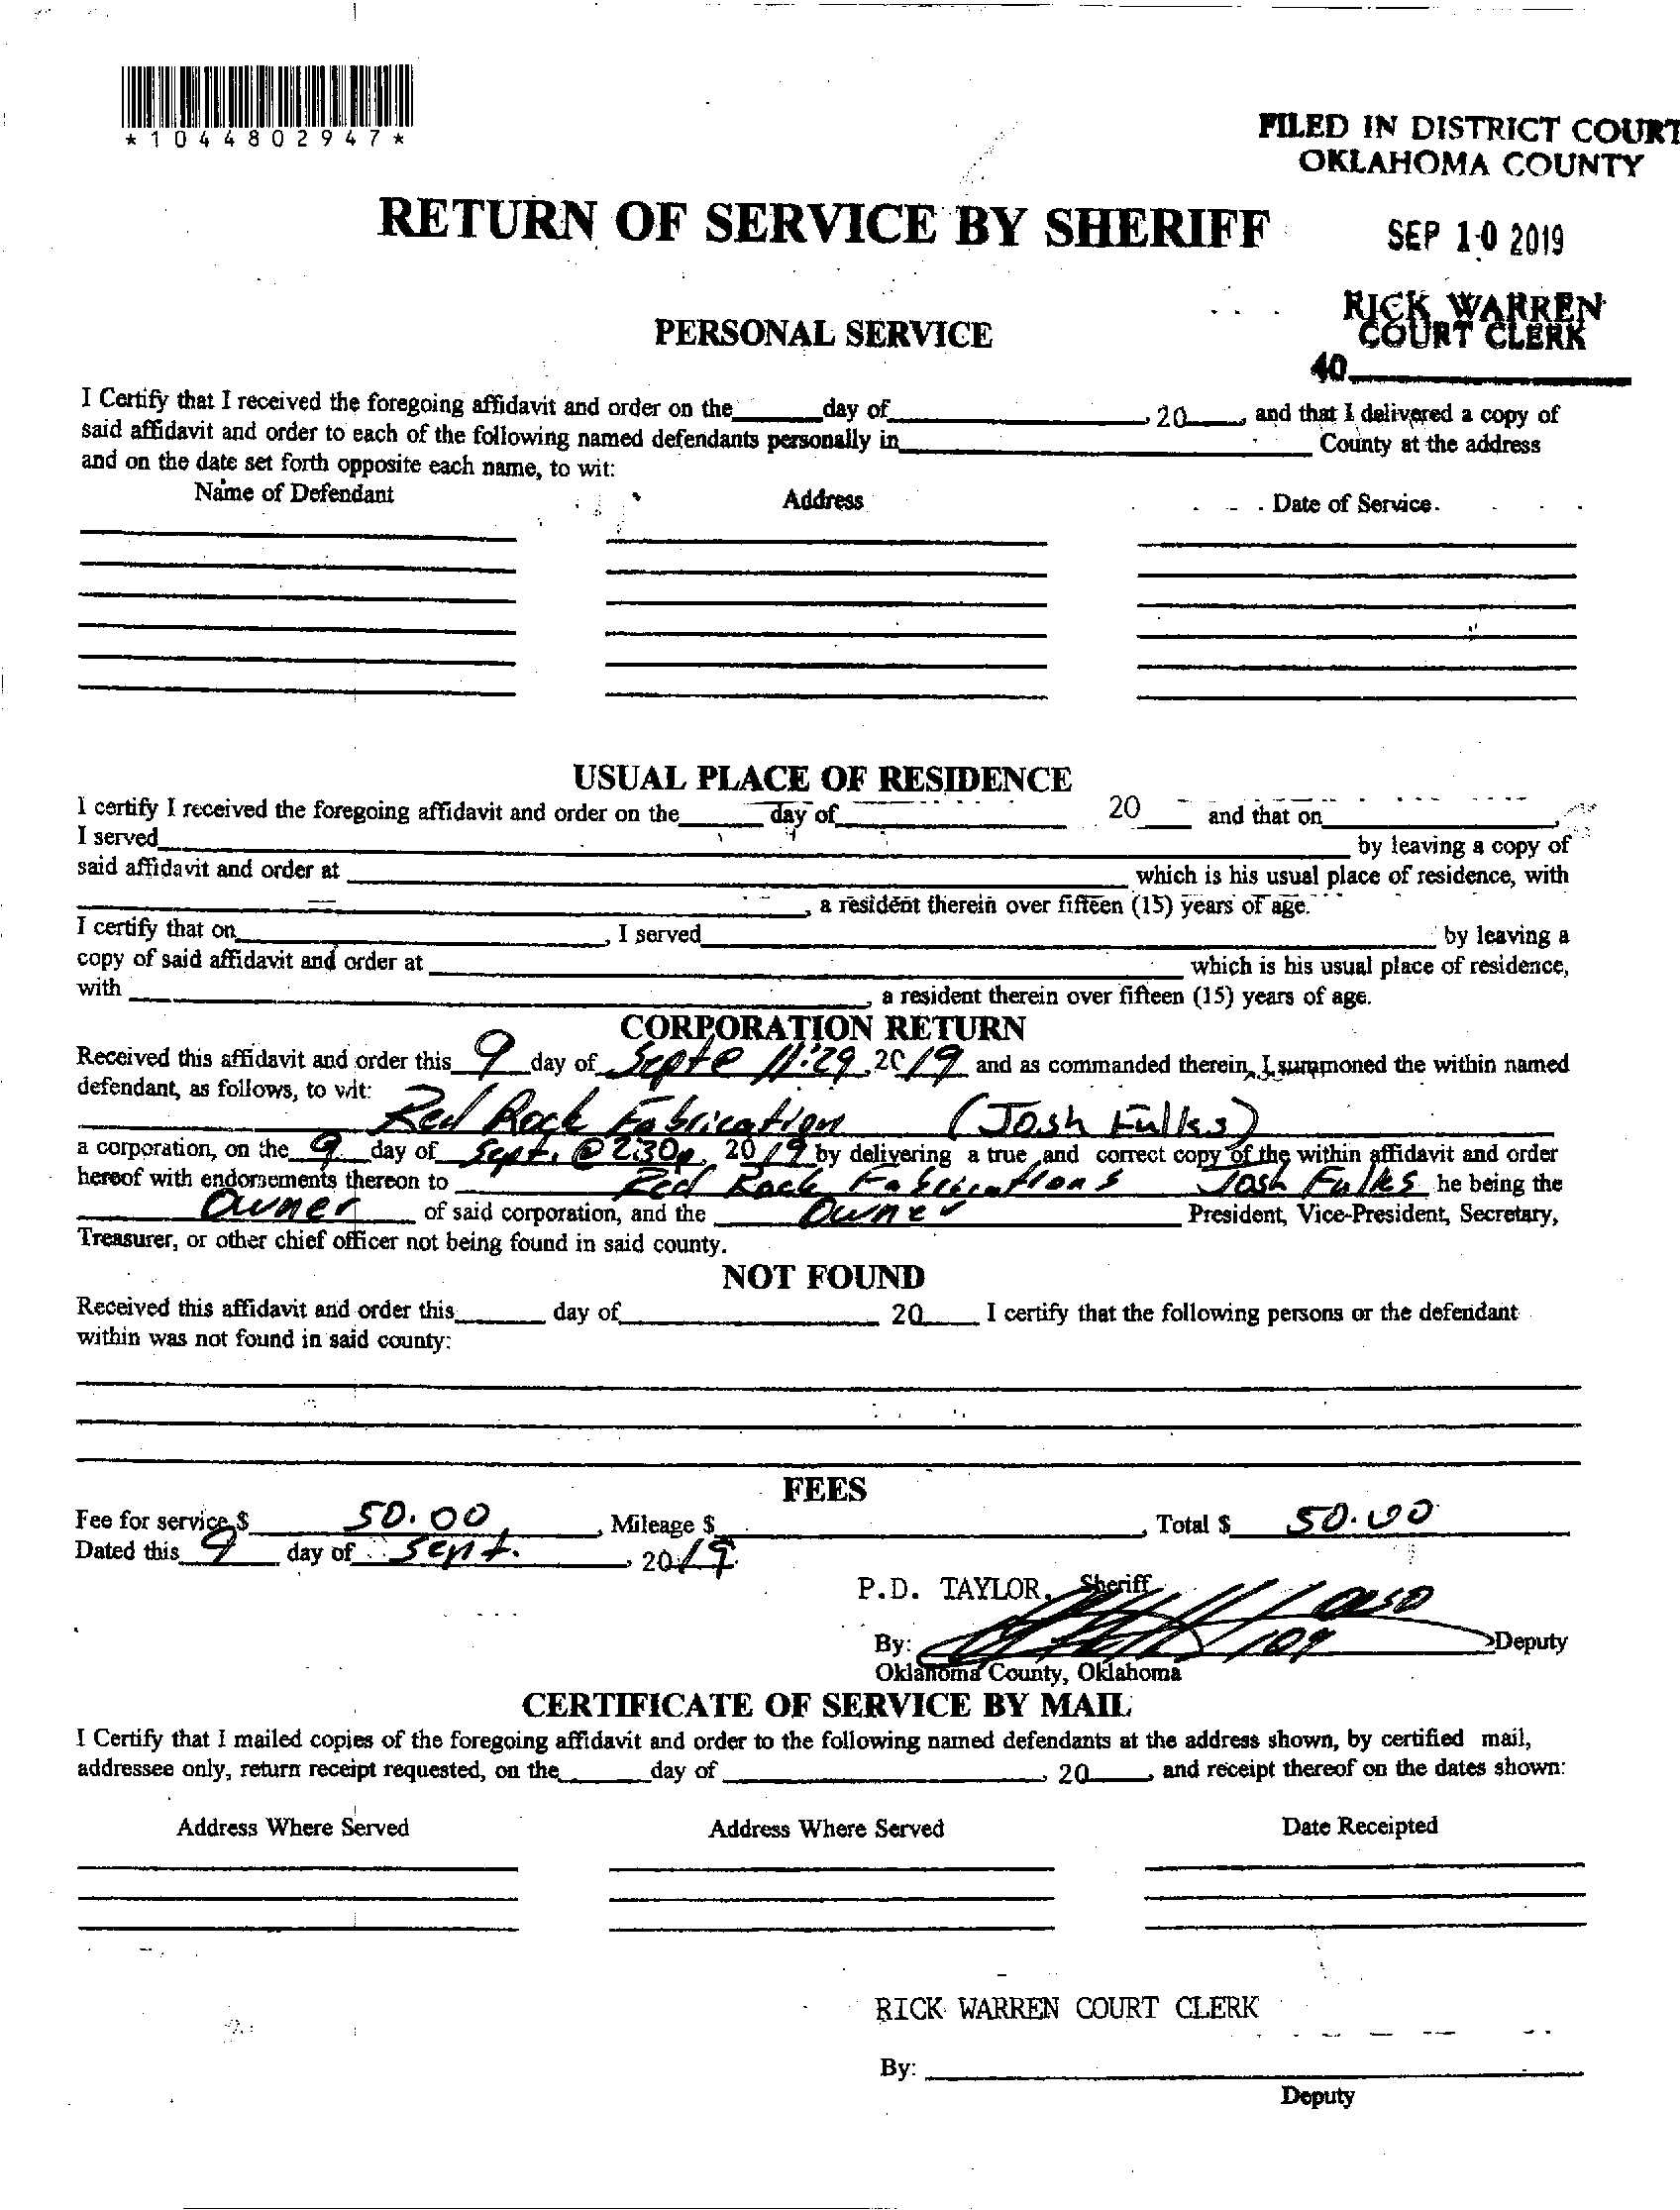 *1044802947*
FILED IN DISTRICT COURT
OKLAHOMA COUNTY
RETURN OF SERVICE BY SHERIFF
SEP 10 2019
RICK WARREN
COURT CLERK
40
PERSONAL SERVICE
I Certify that I received the foregoing affidavit and order on the day of , 20 , and that I delivered a copy of
said affidavit and order to each of the following named defendants personally in County at the address
and on the date set forth opposite each name, to wit:
Name of Defendant Address Date of Service
USUAL PLACE OF RESIDENCE
I certify I received the foregoing affidavit and order on the day of 20 and that on ,
I served by leaving a copy of
said affidavit and order at which is his usual place of residence, with
, a resident therein over fifteen (15) years of age.
I certify that on , I served by leaving a
copy of said affidavit and order at which is his usual place of residence,
with , a resident therein over fifteen (15) years of age.
CORPORATION RETURN
Received this affidavit and order this 9 day of Sept @ 11:29, 2019 and as commanded therein, I summoned the within named
defendant, as follows, to wit:
Red Rock Fabrication (Josh Fulks)
a corporation, on the 9 day of Sept. @ 2:30p, 2019 by delivering a true and correct copy of the within affidavit and order
hereof with endorsements thereon to Red Rock Fabrications Josh Fulks he being the
Owner of said corporation, and the Owner President, Vice-President, Secretary,
Treasurer, or other chief officer not being found in said county.
NOT FOUND
Received this affidavit and order this day of 20 I certify that the following persons or the defendant
within was not found in said county:
FEES
Fee for service $ 50.00, Mileage $ , Total $ 50.00
Dated this 9 day of Sept. , 2019
P.D. TAYLOR, Sheriff
By: 109 Deputy
Oklahoma County, Oklahoma
CERTIFICATE OF SERVICE BY MAIL
I Certify that I mailed copies of the foregoing affidavit and order to the following named defendants at the address shown, by certified mail,
addressee only, return receipt requested, on the day of , 20 , and receipt thereof on the dates shown:
Address Where Served Address Where Served Date Receipted
RICK WARREN COURT CLERK
By:
Deputy